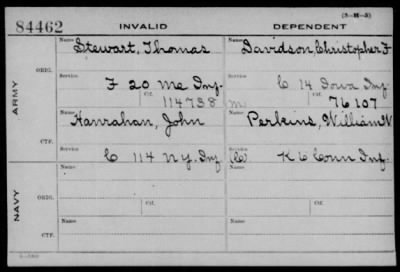 (3-M-3)
84462 INVALID DEPENDENT
ARMY
ORIG.
Name Stewart, Thomas Name Davidson, Christopher F
Service F 20 Me Inf. Service C 14 Iowa Inf
Ctf. 114738 m Ctf. 76107
CTF.
Name Hanrahan, John Name Perkins, William N
Service C 114 N.Y. Inf Service K 6 Conn Inf.
NAVY
ORIG.
Name Name
Ctf. Ctf.
CTF.
Name Name